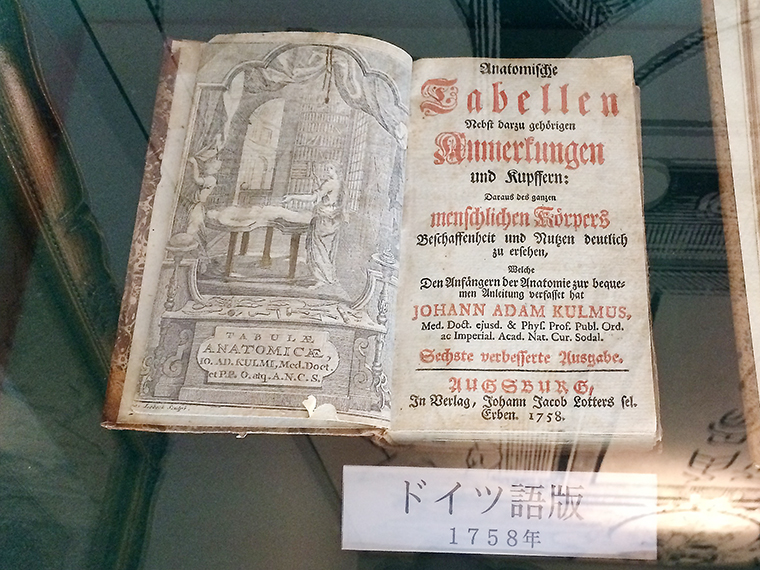 TABULÆ
ANATOMICÆ,
IO. AD. KULMI, Med. Doct.
et P.P. O. atq. A.N.C.S.
Anatomische
Tabellen
Nebst darzu gehörigen
Anmerkungen
und Kupffern:
Daraus des ganzen
menschlichen Körpers
Beschaffenheit und Nutzen deutlich
zu ersehen,
Welche
Den Anfängern der Anatomie zur beque-
men Anleitung verfasset hat
JOHANN ADAM KULMUS,
Med. Doct. ejusd. & Phys. Prof. Publ. Ord.
ac Imperial. Acad. Nat. Cur. Sodal.
Sechste verbesserte Ausgabe.
AUGSBURG,
In Verlag, Johann Jacob Lotters sel.
Erben. 1758.
ドイツ語版
1758年